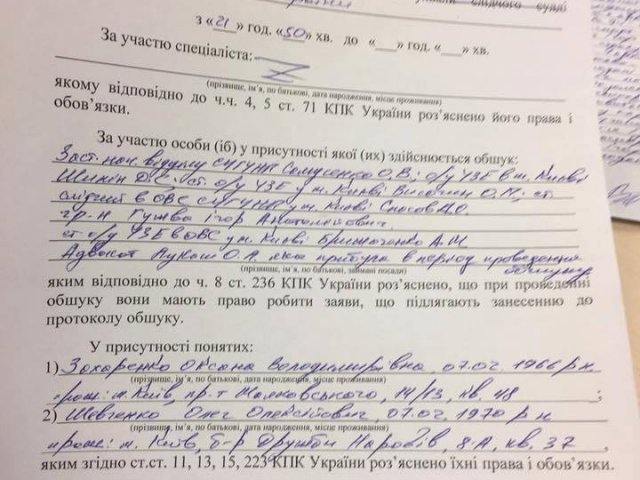 слідчого судді
з «21» год. «50» хв. до «___» год. «___» хв.
За участю спеціаліста:
(прізвище, ім'я, по батькові, дата народження, місце проживання)
якому відповідно до ч.ч. 4, 5 ст. 71 КПК України роз'яснено його права і
обов'язки.
За участю особи (іб) у присутності якої (их) здійснюється обшук:
Заст. нач. відділу О.В; о/у УЗЕ в м. Києві
ст. о/у УЗЕ у м. Києві О.М; ст.
слідчий в ОВС у м. Києві
гр-н Гужва Ігор Анатолійович
ст о/у УЗЕ в ОВС у м. Києві А.М
Адвокат Лукаш О.Л. яка прибула в період проведення
обшуку
(прізвище, ім'я, по батькові, займані посади)
яким відповідно до ч. 8 ст. 236 КПК України роз'яснено, що при проведенні
обшуку вони мають право робити заяви, що підлягають занесенню до
протоколу обшуку.
У присутності понятих:
1) Захаренко Оксана Володимирівна, 07.02.1966 р.н
(прізвище, ім'я, по батькові, дата народження, місце проживання)
прож: м. Київ, пр-т Маяковського, 14/13, кв. 48 ;
2) Шевченко Олег Олексійович, 07.02.1970 р.н
(прізвище, ім'я, по батькові, дата народження, місце проживання)
прож: м. Київ, б-р Дружби Народів, 8А, кв. 37 ,
яким згідно ст.ст. 11, 13, 15, 223 КПК України роз'яснено їхні права і обов'язки.